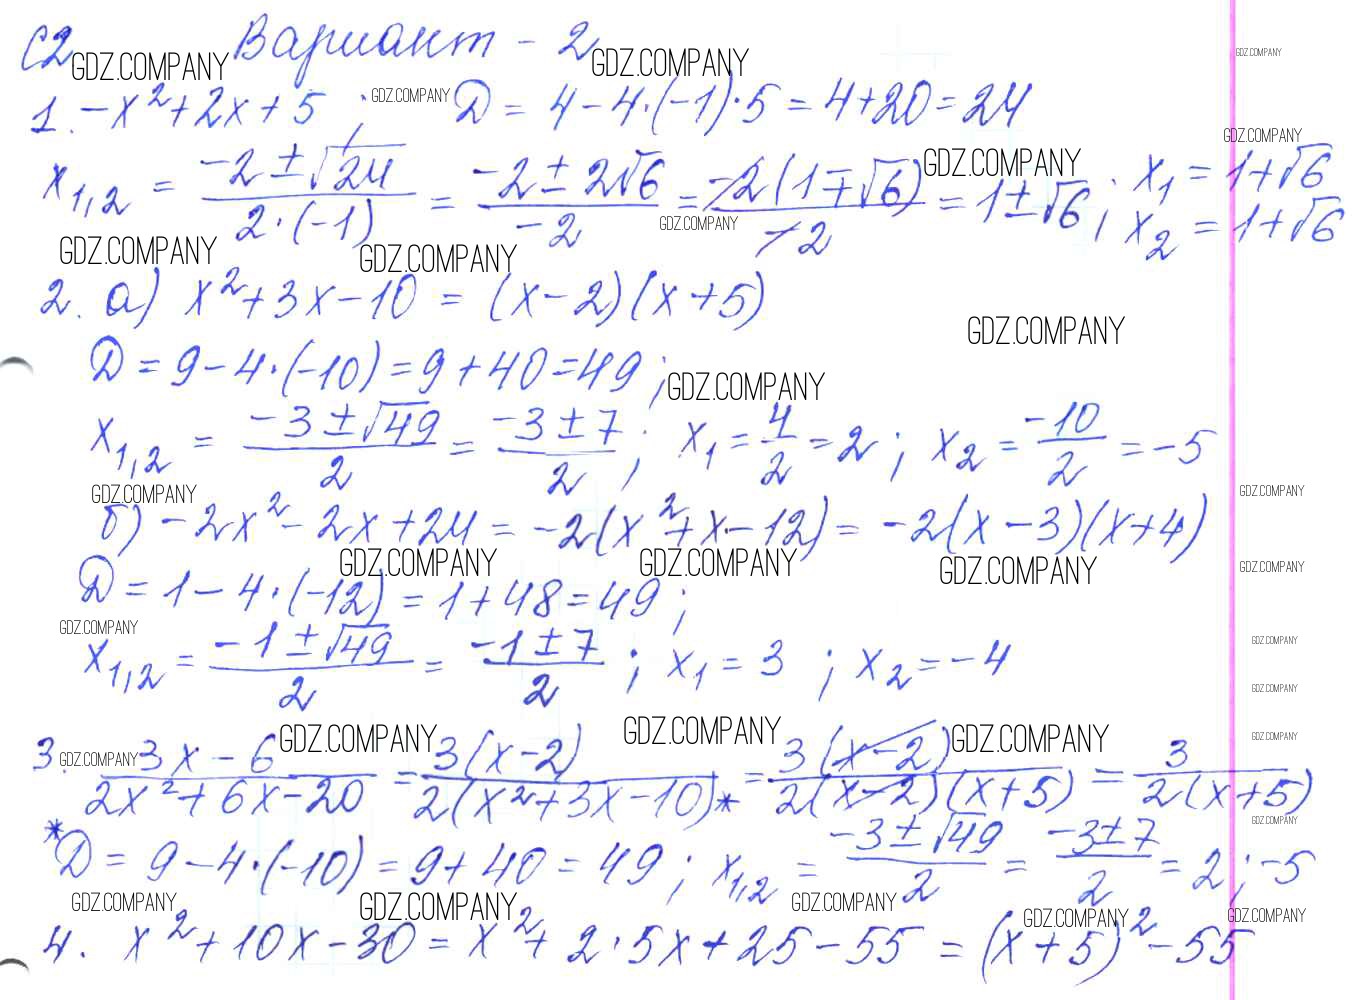 С2 Вариант - 2
1. -x² + 2x + 5 ; D = 4 - 4·(-1)·5 = 4 + 20 = 24
x₁,₂ = (-2 ± √24)/(2·(-1)) = (-2 ± 2√6)/(-2) = (-2(1 ∓ √6))/(-2) = 1 ± √6 ; x₁ = 1 + √6
x₂ = 1 + √6
2. а) x² + 3x - 10 = (x - 2)(x + 5)
D = 9 - 4·(-10) = 9 + 40 = 49 ;
x₁,₂ = (-3 ± √49)/2 = (-3 ± 7)/2 ; x₁ = 4/2 = 2 ; x₂ = -10/2 = -5
б) -2x² - 2x + 24 = -2(x² + x - 12) = -2(x - 3)(x + 4)
D = 1 - 4·(-12) = 1 + 48 = 49 ;
x₁,₂ = (-1 ± √49)/2 = (-1 ± 7)/2 ; x₁ = 3 ; x₂ = -4
3. (3x - 6)/(2x² + 6x - 20) = 3(x - 2)/(2(x² + 3x - 10)*) = 3(x - 2)/(2(x - 2)(x + 5)) = 3/(2(x + 5))
*D = 9 - 4·(-10) = 9 + 40 = 49 ; x₁,₂ = (-3 ± √49)/2 = (-3 ± 7)/2 = 2 ; -5
4. x² + 10x - 30 = x² + 2·5x + 25 - 55 = (x + 5)² - 55
GDZ.COMPANY